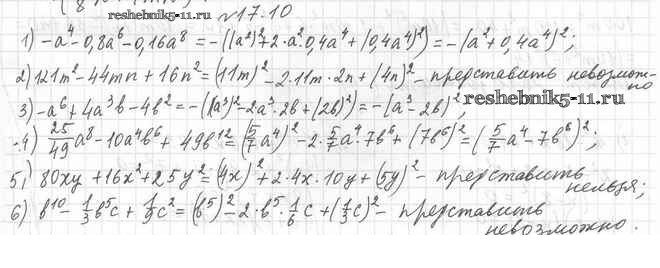 reshebnik5-11.ru
№17.10
1) -a⁴ - 0,8a⁶ - 0,16a⁸ = -((a²)² + 2·a²·0,4a⁴ + (0,4a⁴)²) = -(a² + 0,4a⁴)²;
2) 121m² - 44mn + 16n² = (11m)² - 2·11m·2n + (4n)² - представить невозмож-
но
3) -a⁶ + 4a³b - 4b² = -((a³)² - 2a³·2b + (2b)²) = -(a³ - 2b)²;
reshebnik5-11.ru
4) 25/49 a⁸ - 10a⁴b⁶ + 49b¹² = (5/7 a⁴)² - 2·5/7 a⁴·7b⁶ + (7b⁶)² = (5/7 a⁴ - 7b⁶)²;
5) 80xy + 16x² + 25y² = (4x)² + 2·4x·10y + (5y)² - представить
нельзя;
6) b¹⁰ - 1/3 b⁵c + 1/9 c² = (b⁵)² - 2·b⁵·1/6 c + (1/3 c)² - представить
невозможно.